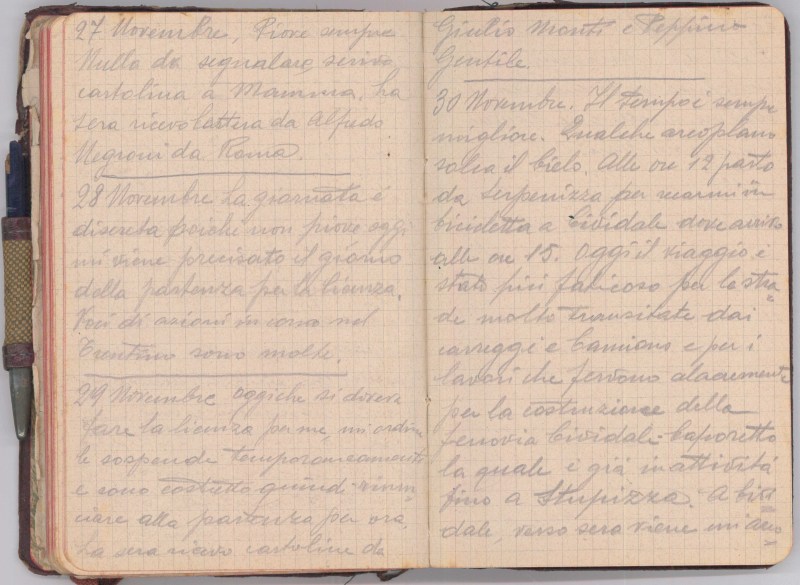 27 Novembre, Piove sempre
Nulla da segnalare, scrivo
cartolina a Mamma. La
sera ricevo lettera da Alfredo
Negroni da Roma.
28 Novembre La giornata é
discreta poiche non piove oggi
mi viene precisato il giorno
della partenza per la licenza.
Voci di azioni in corso nel
Trentino sono molte.
29 Novembre Oggi che si doveva
fare la licenza per me, un ordine
le sospende temporaneamente
e sono costretto quindi rinun=
ciare alla partenza per ora.
La sera ricevo cartoline da
Giulio Monti e Peppino
Gentile.
30 Novembre. Il tempo é sempre
migliore. Qualche areoplano
solca il cielo. Alle ore 12 parto
da Serpenizza per recarmi in
bicicletta a Cividale dove arrivo
alle ore 15. Oggi il viaggio é
stato più faticoso per le stra=
de molto transitate dai
carreggi e Camions e per i
lavori che fervono alacremente
per la costruzione della
ferrovia Cividale-Caporetto
la quale é giá in attivitá
fino a Stupizza. A Civi=
dale, verso sera viene un aero=